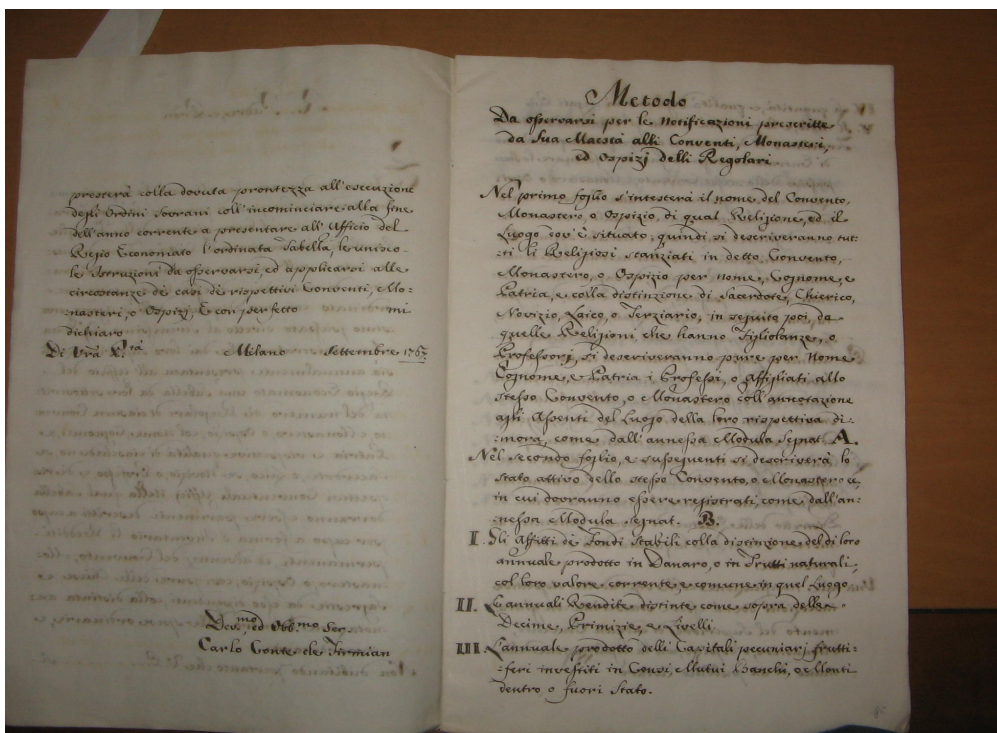 presterà colla dovuta prontezza all'esecuzione
degli Ordini Sovrani coll'incominciare alla fine
dell'anno corrente a presentare all'Ufficio del
Regio Economato l'ordinata Tabella, le unisco
le Istruzioni da osservarsi, ed applicarsi alle
circostanze de casi de rispettivi Conventi, Mo:
:nasteri, o Ospizj, E con perfetto mi
dichiaro
Di Vrã
Milano Settembre 1767
Devmo, ed Obbmo Ser.
Carlo Conte de Firmian
Metodo
Da osservarsi per le Notificazioni prescritte
da Sua Maestà alli Conventi, Monasteri,
ed Ospizj delli Regolari
Nel primo foglio s'intesterà il nome del Convento,
Monastero, o Ospizio, di qual Religione, ed il
Luogo dov'è situato, quindi si descriveranno tut:
:ti li Religiosi stanziati in detto Convento,
Monastero, o Ospizio per nome, Cognome, e
Patria, e colla distinzione di Sacerdote, Chierico,
Novizio, Laico, o Terziario, in seguito poi, da
quelle Religioni che hanno Figliolanze, o
Professori, si descriveranno pure per Nome
Cognome, e Patria i Professi, o affigliati allo
stesso Convento, o Monastero coll'annotazione
agli Assenti del Luogo della loro rispettiva di:
:mora, come dall'annessa Modula Segnat. A.
Nel secondo foglio, e susseguenti si descriverà lo
Stato attivo dello stesso Convento, o Monastero
in cui dovranno essere registrati, come dall'an:
:nessa Modula segnat. B.
I. Gli Affitti de Fondi Stabili colla distinzione del di loro
annuale prodotto in Danaro, o in Frutti naturali,
col loro valore corrente, e comune in quel Luogo.
II. L'annuali Rendite distinte come sopra delle
Decime, Primizie, e Livelli.
III L'annuale prodotto delli Capitali pecuniarj frutti:
:feri investiti in Censi, Mutui Banchi, o Monti
dentro, o fuori Stato.